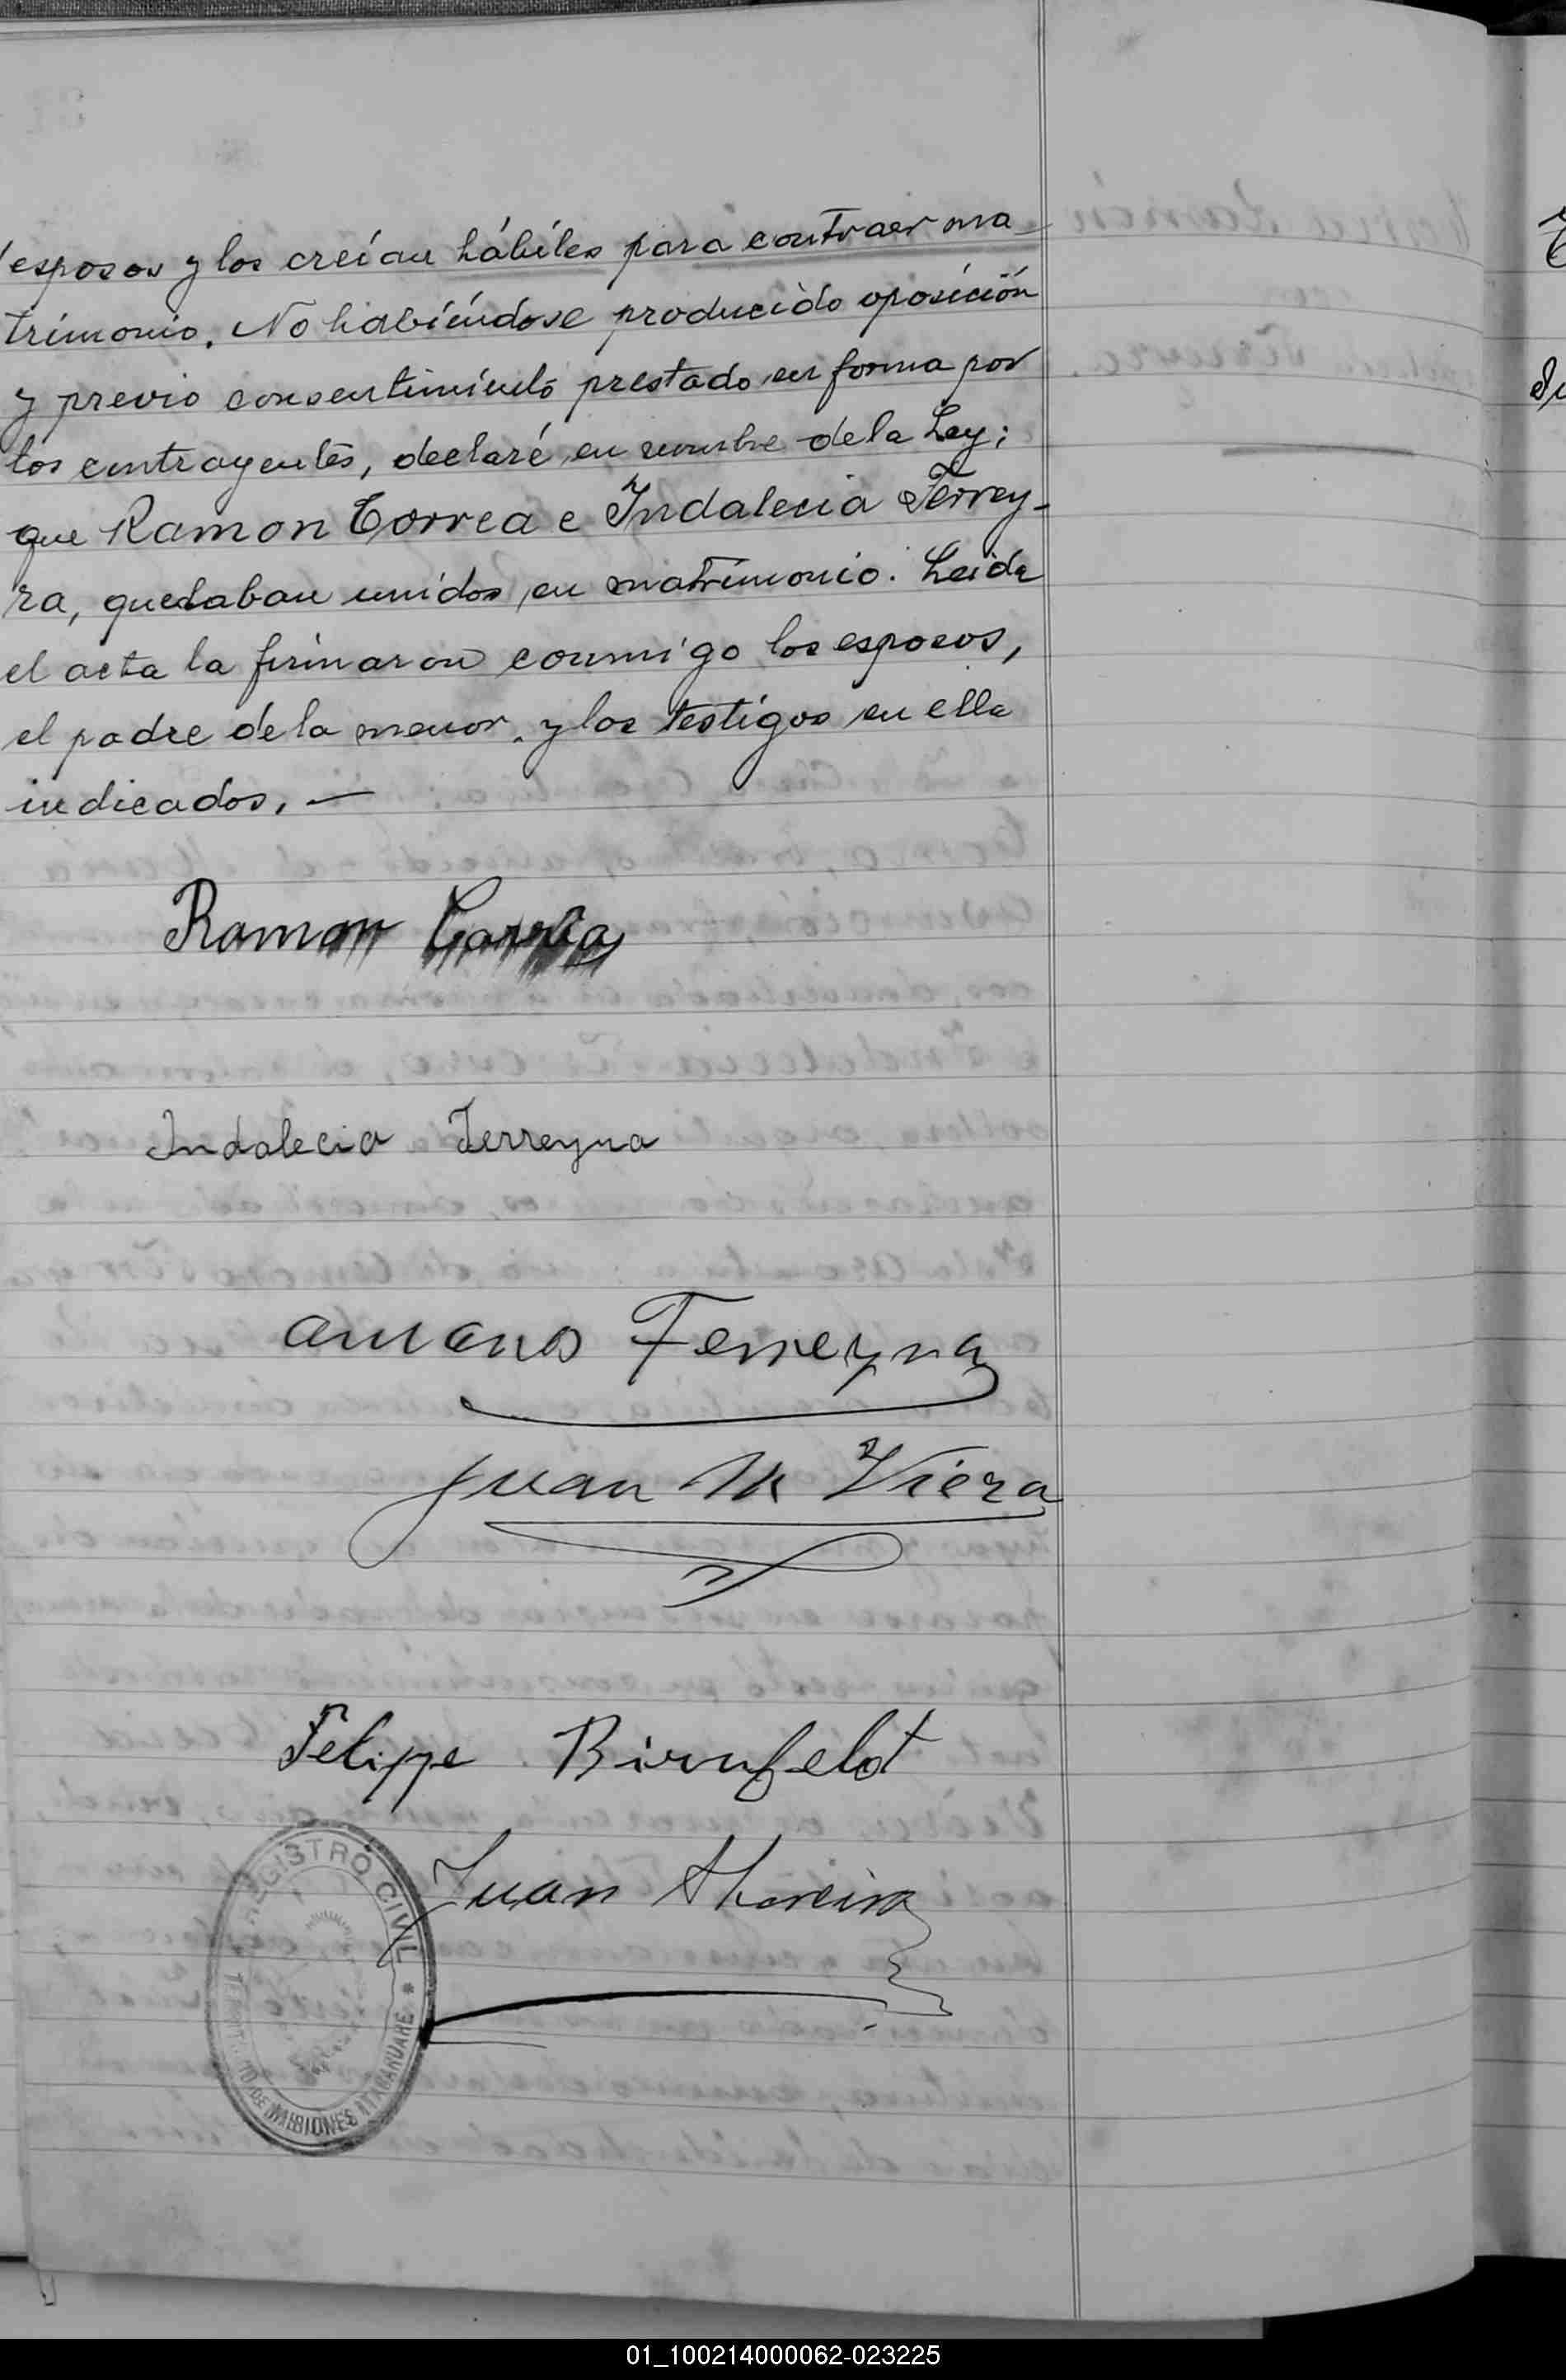 esposos y los creían hábiles para contraer ma-
trimonio. No habiéndose producido oposición
y previo consentimiento prestado en forma por
los contrayentes, declaré en nombre de la Ley;
que Ramon Correa e Indalecia Ferrey-
ra, quedaban unidos en matrimonio. Leida
el acta la firmaron conmigo los esposos,
el padre de la menor, y los testigos en ella
indicados. —
Ramon Correa
Indalecia Ferreyra
Ferreyra
Juan M Viera
Felipe Birnfeldt
Juan
REGISTRO CIVIL
TERRITORIO DE MISIONES ITACARUARE
01_100214000062-023225